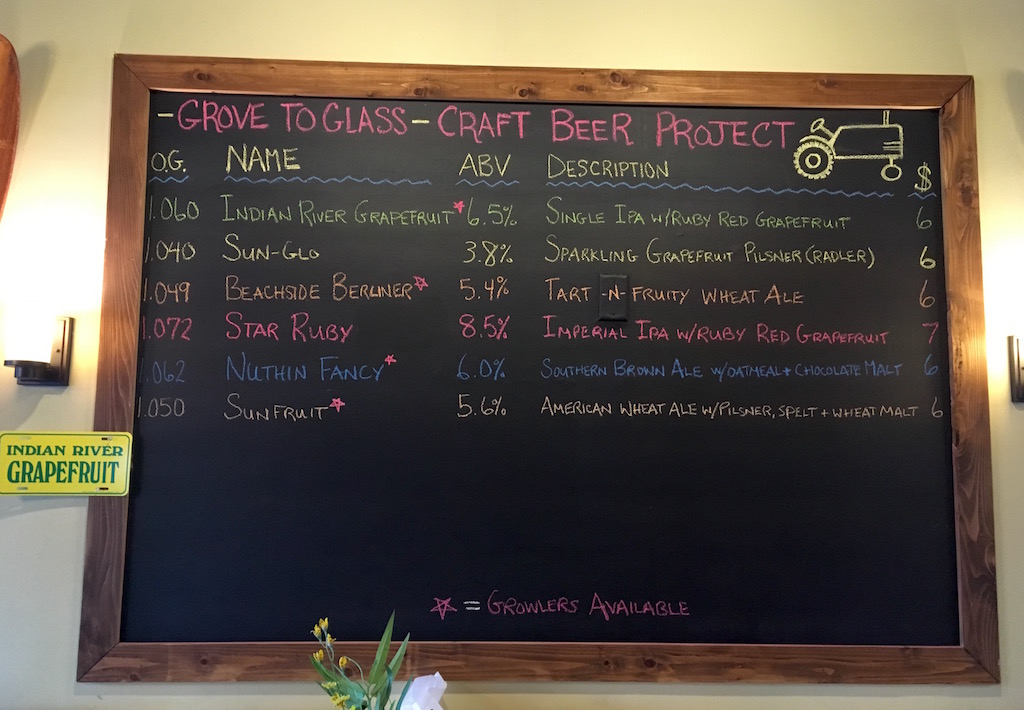 - GROVE TO GLASS - CRAFT BEER PROJECT
O.G. NAME ABV DESCRIPTION $
1.060 INDIAN RIVER GRAPEFRUIT 6.5% SINGLE IPA W/RUBY RED GRAPEFRUIT 6
1.040 SUN-GLO 3.8% SPARKLING GRAPEFRUIT PILSNER (RADLER) 6
1.049 BEACHSIDE BERLINER 5.4% TART -N- FRUITY WHEAT ALE 6
1.072 STAR RUBY 8.5% IMPERIAL IPA W/RUBY RED GRAPEFRUIT 7
1.062 NUTHIN FANCY 6.0% SOUTHERN BROWN ALE W/OATMEAL + CHOCOLATE MALT 6
1.050 SUNFRUIT 5.6% AMERICAN WHEAT ALE W/PILSNER, SPELT + WHEAT MALT 6
INDIAN RIVER
GRAPEFRUIT
= GROWLERS AVAILABLE